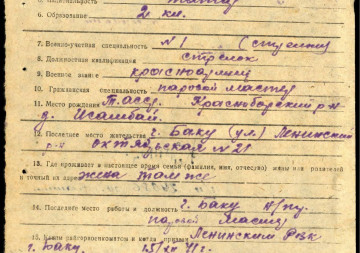 6. Образование 2 кл.
7. Военно-учетная специальность №1 (
8. Должностная квалификация стрелок
9. Военное звание красноармеец
10. Гражданская специальность паровой мастер
11. Место рождения Т.АССР. Красноборский р-н
д. Исамбай
Последнее место жительства г. Баку (ул.) Ленинский
р-н Октябрьская №21
13. Где проживает в настоящее время семья (фамилия, имя, отчество) жены или родителей
и точный их адрес жена там же
14. Последнее место работы и должность г. Баку
мастер
15. Каким райгорвоенкоматом и когда призван Ленинским РВК
г. Баку. 41 г.